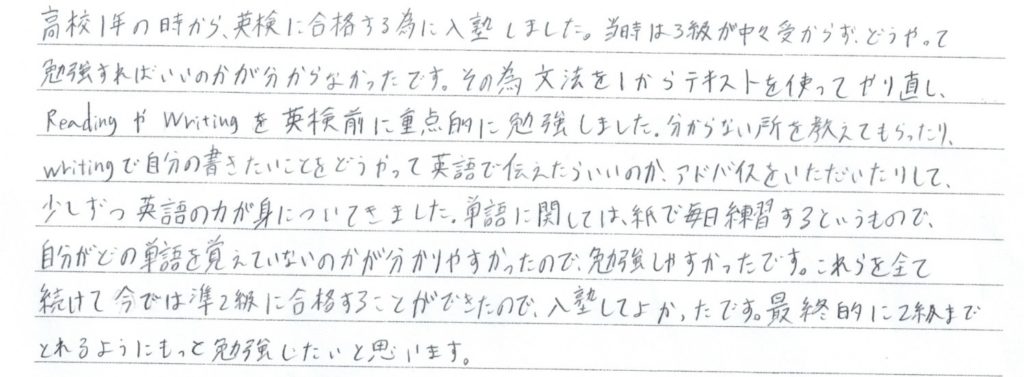 高校1年の時から、英検に合格する為に入塾しました。当時は3級が中々受からず、どうやって
勉強すればいいのかが分からなかったです。その為文法を1からテキストを使ってやり直し、
ReadingやWritingを英検前に重点的に勉強しました。分からない所を教えてもらったり、
writingで自分の書きたいことをどうやって英語で伝えたらいいのか、アドバイスをいただいたりして、
少しずつ英語の力が身についてきました。単語に関しては、紙で毎日練習するというもので、
自分がどの単語を覚えていないのかが分かりやすかったので、勉強しやすかったです。これらを全て
続けて今では準2級に合格することができたので、入塾してよかったです。最終的に2級まで
とれるようにもっと勉強したいと思います。